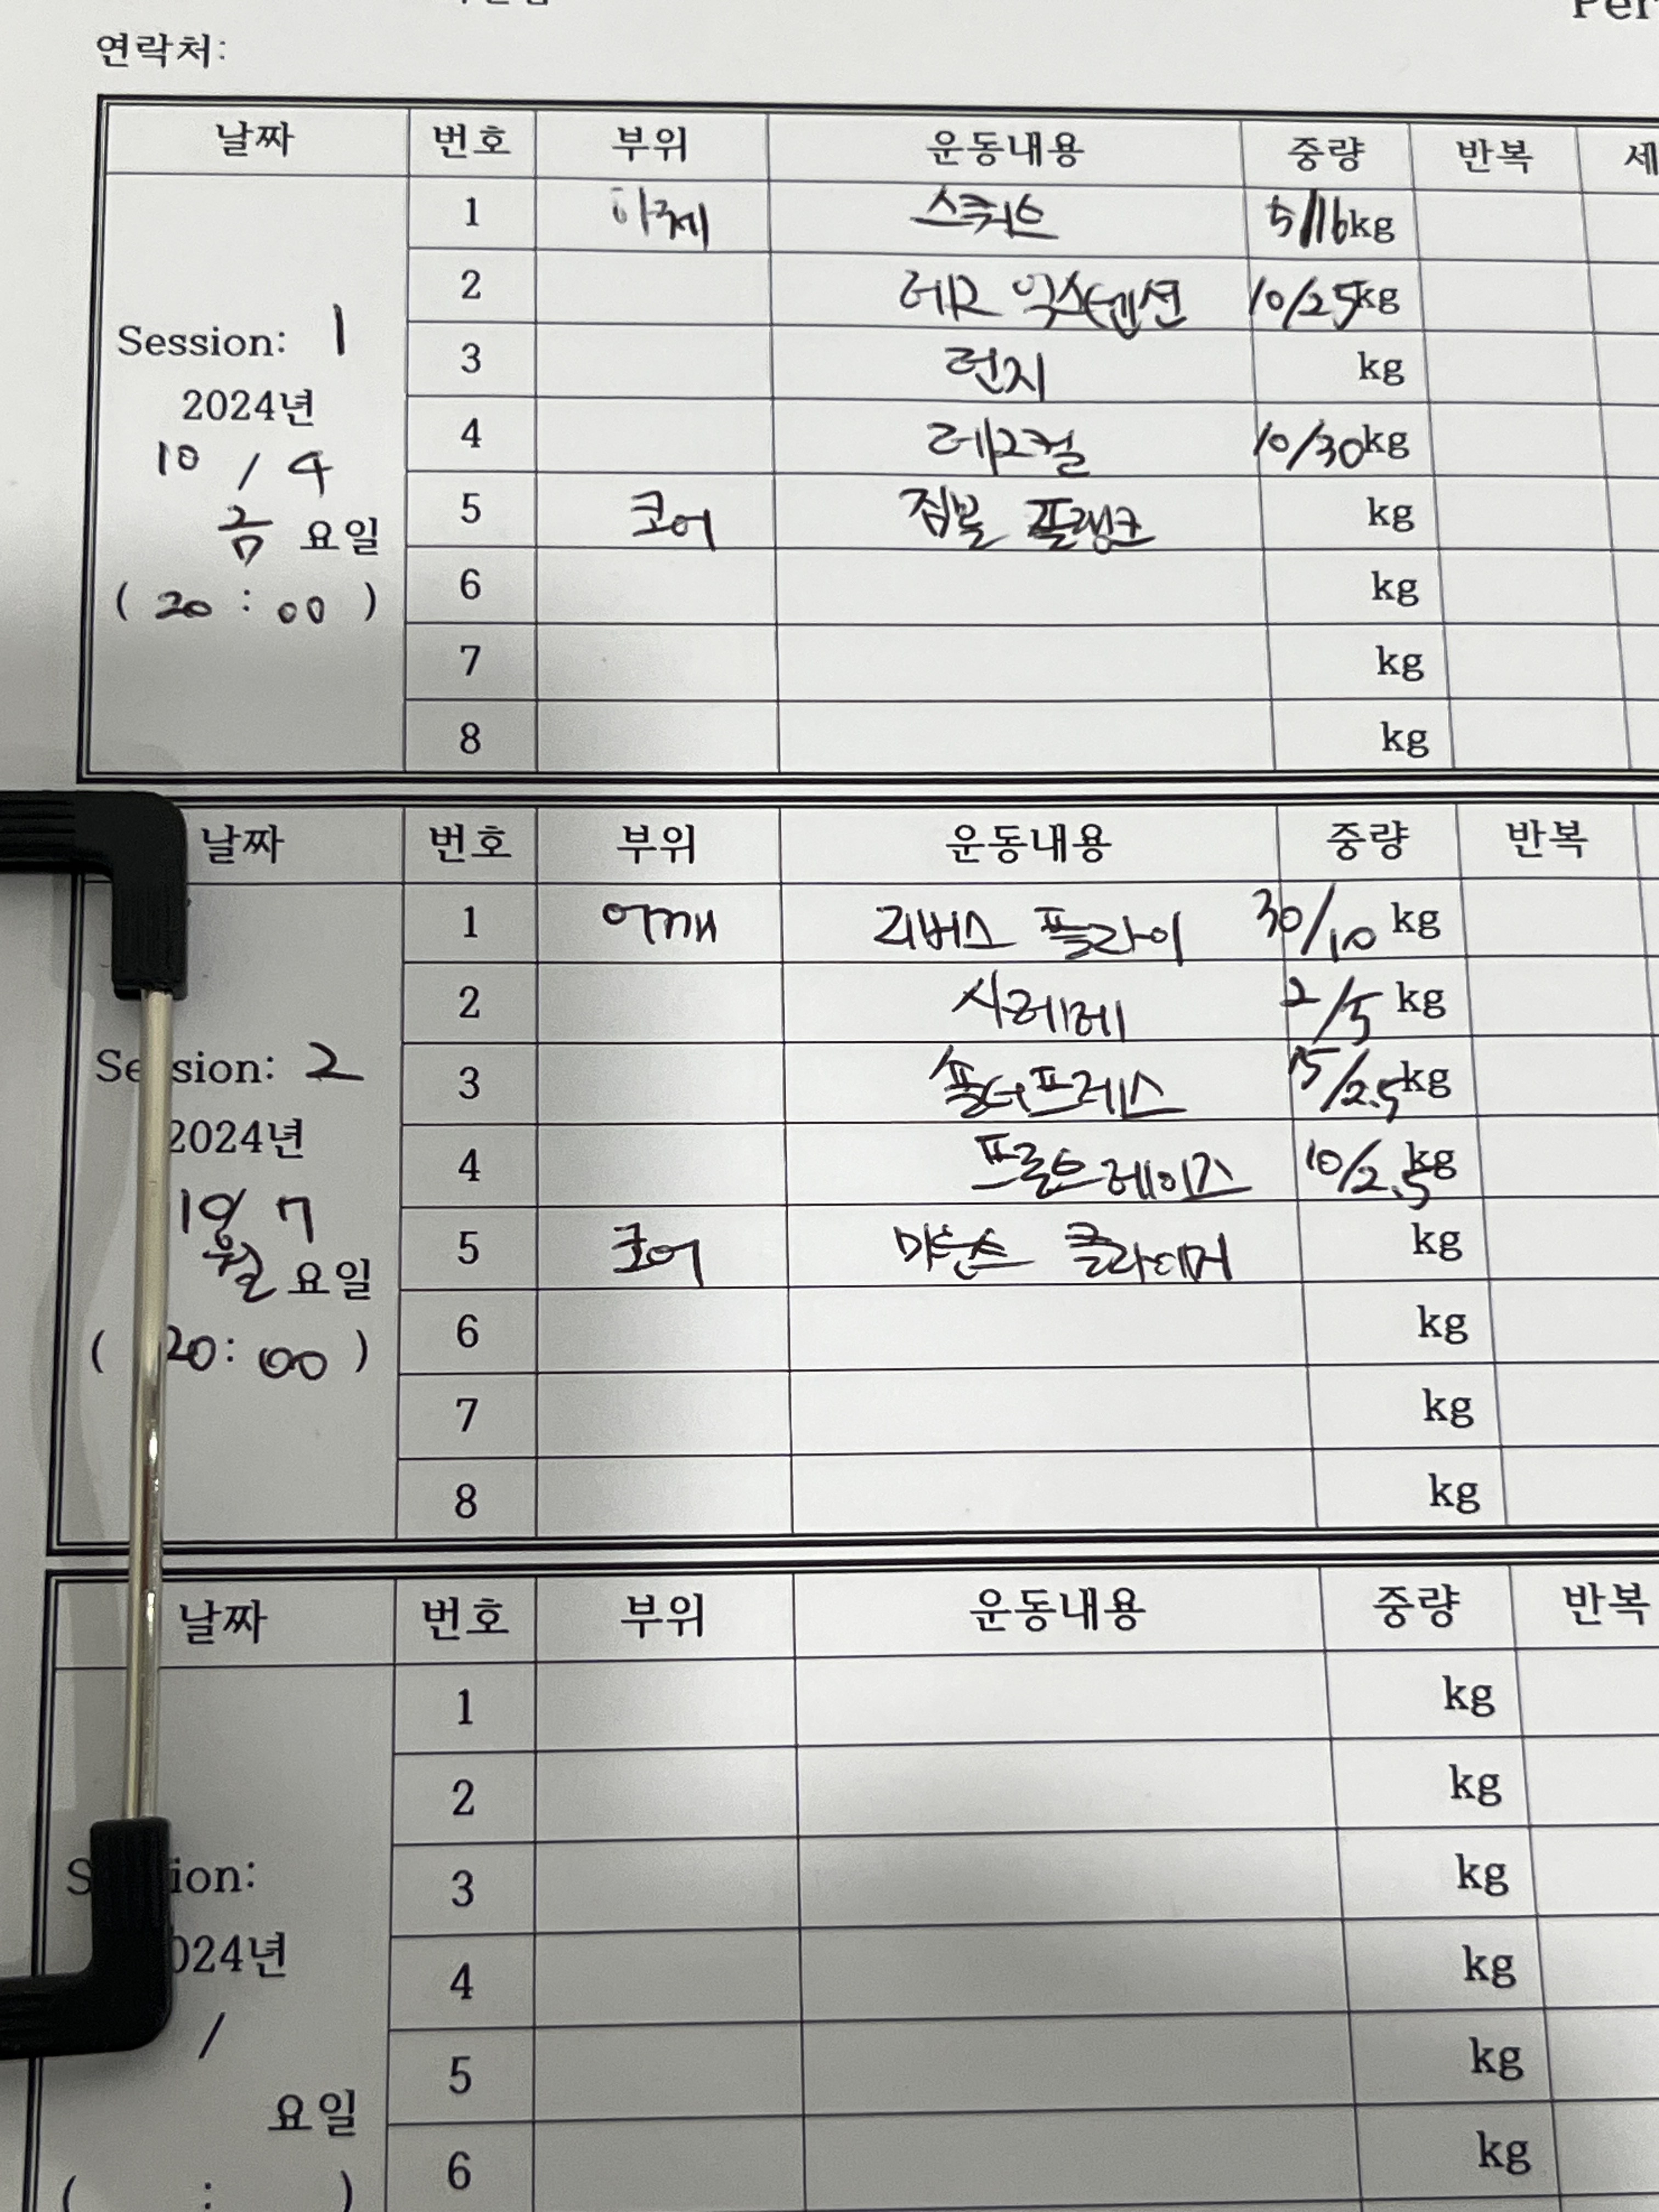 Per
연락처:
날짜 번호 부위 운동내용 중량 반복 세
1 하체 스쿼트 5/16kg
2 레그 익스텐션 10/25kg
Session: 1
3 런지 kg
2024년
4 레그컬 10/30kg
10 / 4
5 코어 짐볼 플랭크 kg
금 요일
6 kg
( 20 : 00 )
7 kg
8 kg
날짜 번호 부위 운동내용 중량 반복
1 어깨 리버스 플라이 30/10 kg
2 사레레 2/5 kg
Session: 2
3 숄더프레스 15/2.5kg
2024년
4 프론트레이즈 10/2.5kg
10/ 7
5 코어 마운트 클라이머 kg
월 요일
6 kg
( 20: 00 )
7 kg
8 kg
날짜 번호 부위 운동내용 중량 반복
1 kg
2 kg
Session:
3 kg
2024년
4 kg
/
5 kg
요일
6 kg
( : )